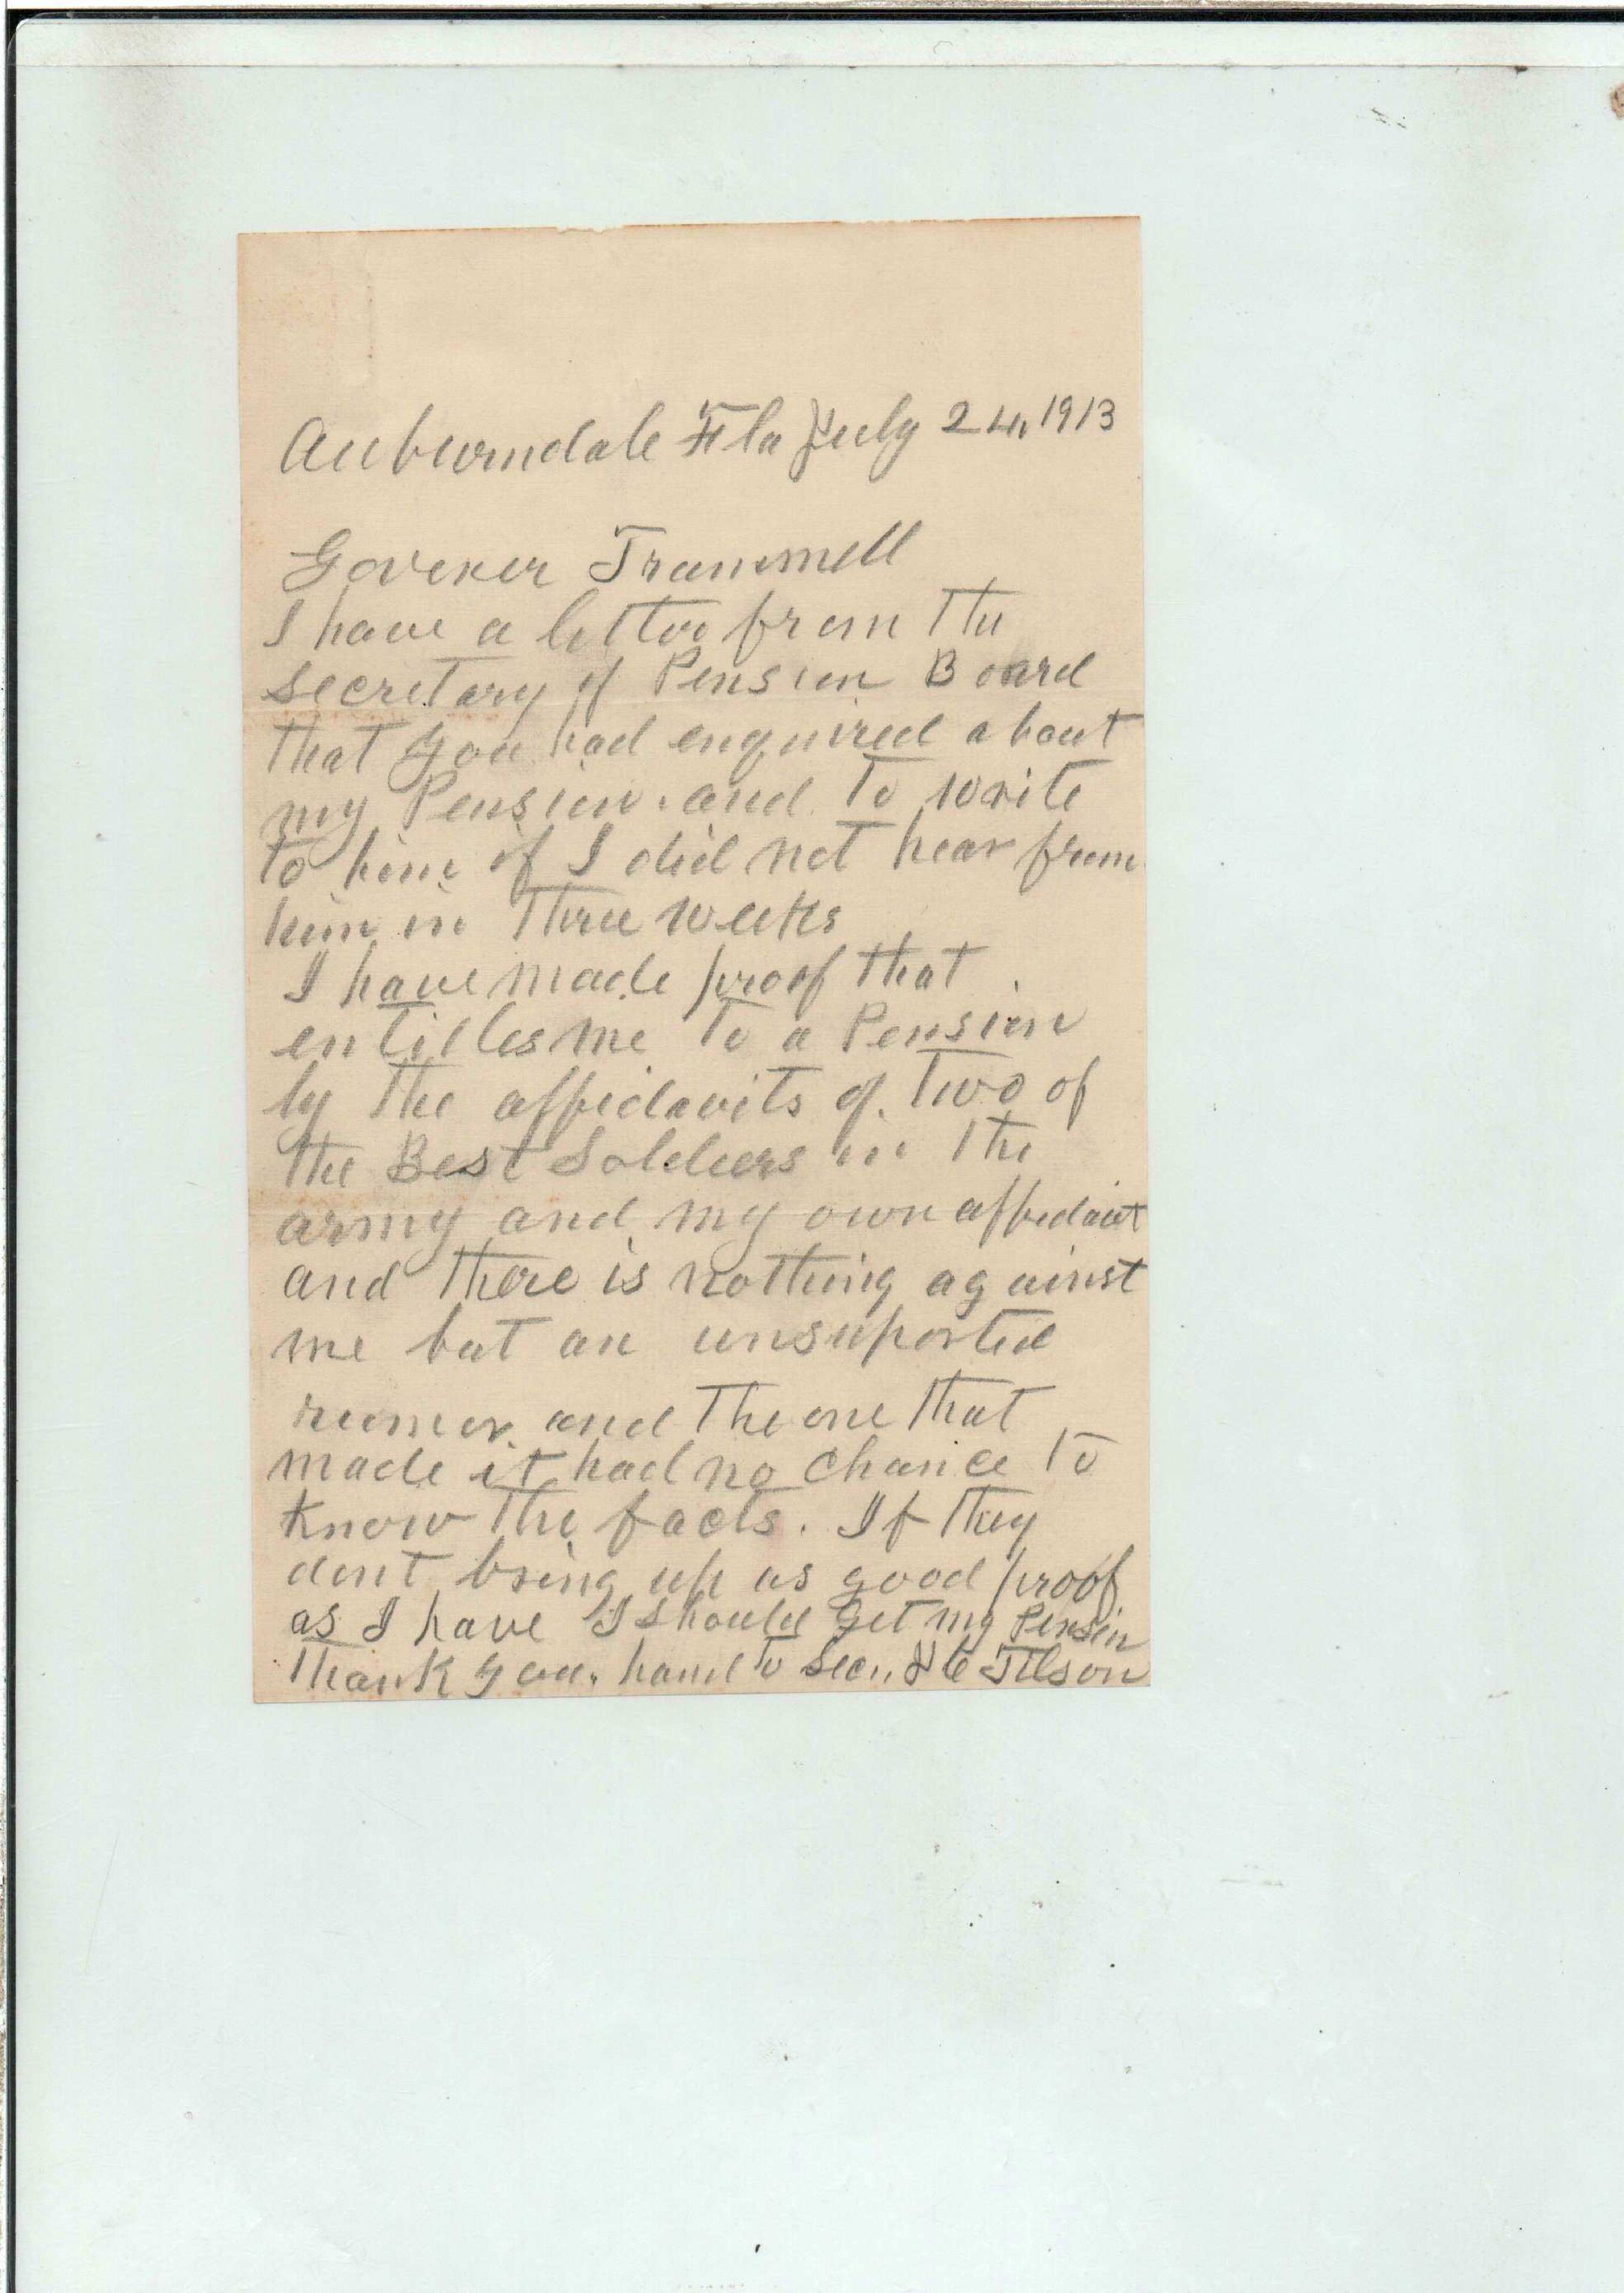 Auburndale Fla July 24, 1913
Govener Trammell
I have a letter from the
secretary of Pension Board
that you had enquired about
my Pension. and to write
to him if I did not hear from
him in three weeks
I have made proof that
entitles me to a Pension
by the affidavits of two of
the Best Soldiers in the
army and my own affidavit
and there is nothing against
me but an unsuported
rumor. and the one that
made it had no chance to
know the facts. If they
dont bring up as good proof
as I have I should get my Pension
Thank you. hand to Sec., Tilson